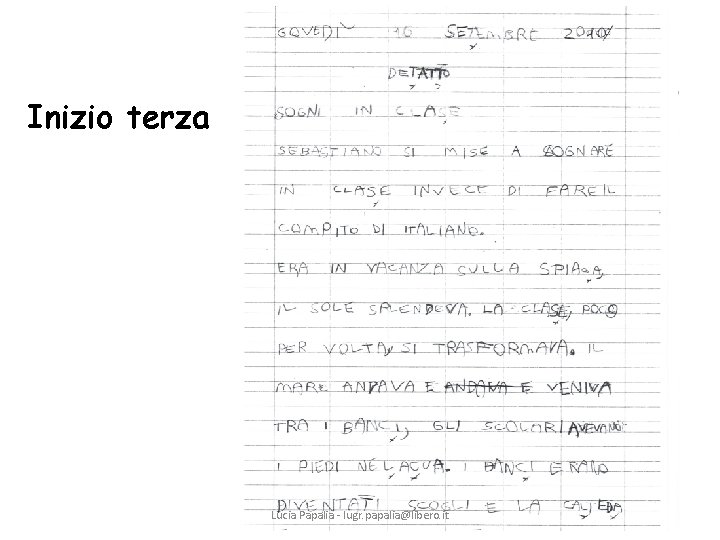 Inizio terza
GOVEDI' 16 SETEMBRE 2010
DETATTO
SOGNI IN CLASE
SEBASTIANO SI MISE A SOGNARE
IN CLASE INVECE DI FARE IL
COMPITO DI ITALIANO.
ERA IN VACANZA SULLA SPIAGA,
IL SOLE SPLENDEVA. LA CLASE, POCO
PER VOLTA, SI TRASFORMAVA. IL
MARE ANDAVA E ANDAVA E VENIVA
TRA I BANCI, GLI SCOLARI AVEVANO
I PIEDI NELACUA. I BANCI ERANO
DIVENTATI SCOGLI E LA
Lucia Papalia - lugr.papalia@libero.it